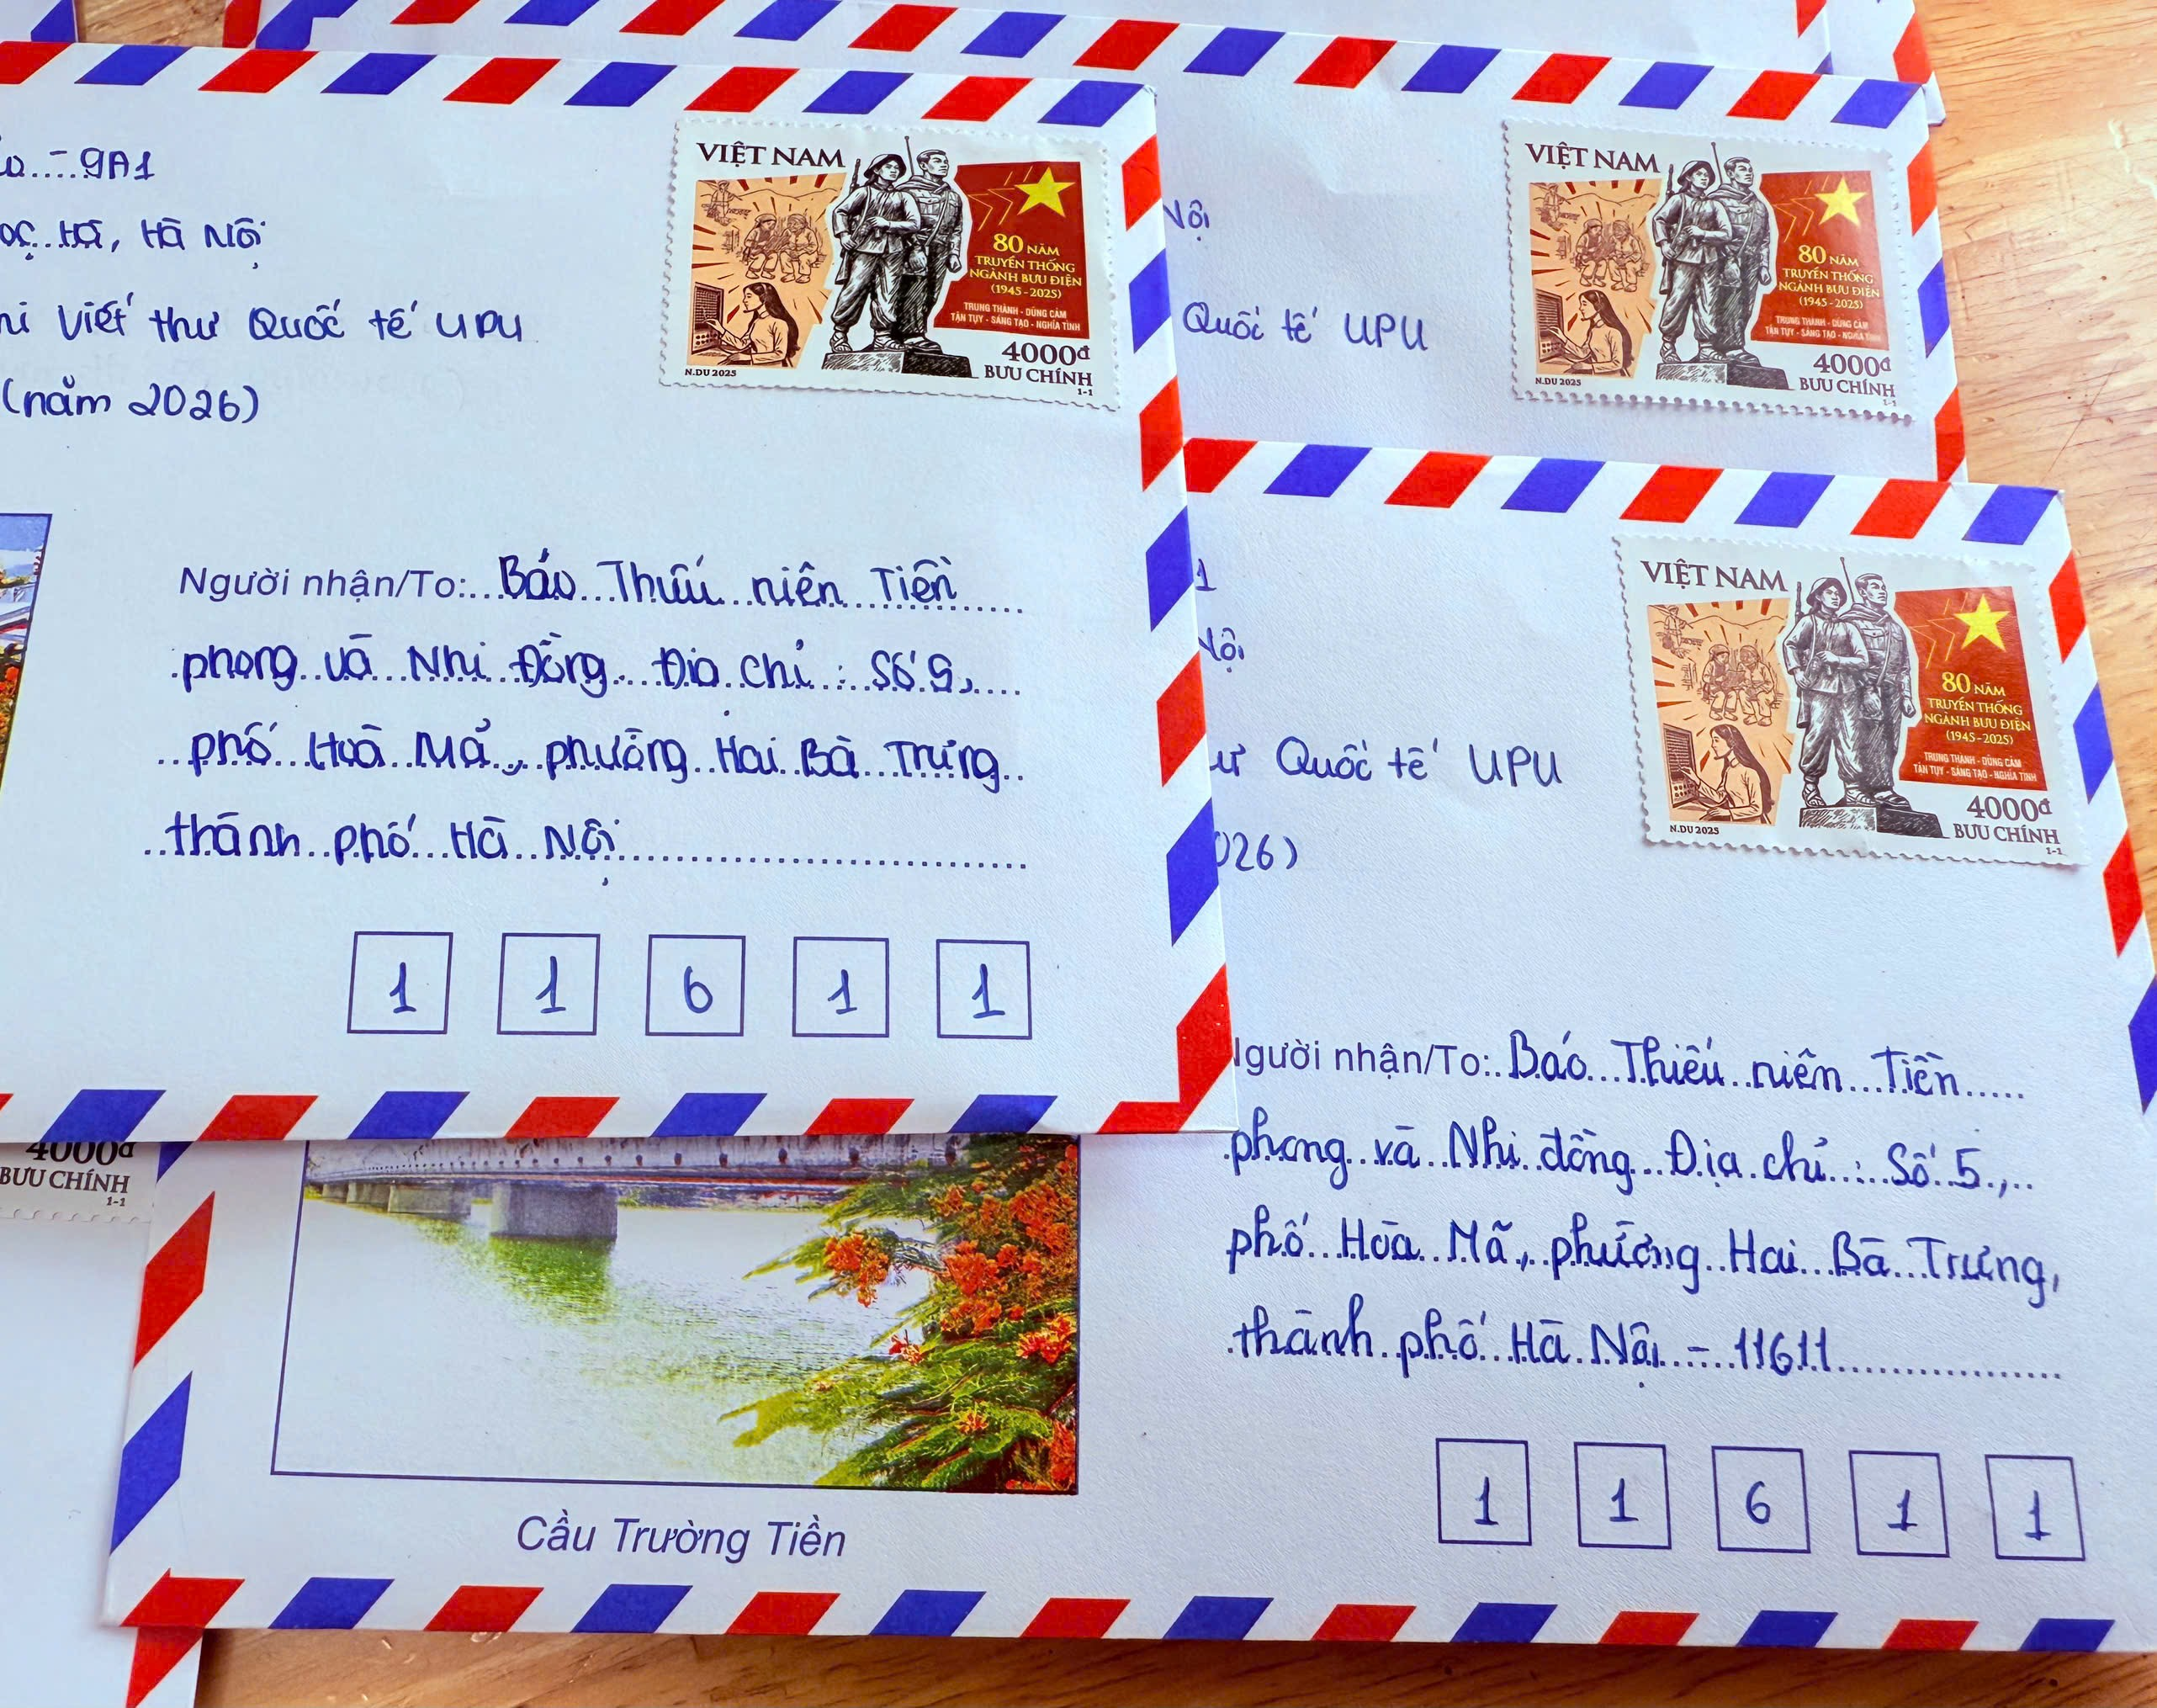 9A1
Hà Nội
Viết thư Quốc tế UPU
(năm 2026)
VIỆT NAM
80 NĂM
TRUYỀN THỐNG
NGÀNH BƯU ĐIỆN
(1945-2025)
TRUNG THÀNH - DŨNG CẢM
TẬN TỤY - SÁNG TẠO - NGHĨA TÌNH
4000đ
BƯU CHÍNH
1-1
N.DU 2025
Người nhận/To: Báo Thiếu niên Tiền
phong và Nhi Đồng Địa chỉ : Số 5,
phố Hoà Mã, phường Hai Bà Trưng
thành phố Hà Nội
1 1 6 1 1
Nội
Quốc tế UPU
VIỆT NAM
80 NĂM
TRUYỀN THỐNG
NGÀNH BƯU ĐIỆN
(1945-2025)
TRUNG THÀNH - DŨNG CẢM
TẬN TỤY - SÁNG TẠO - NGHĨA TÌNH
4000đ
BƯU CHÍNH
1-1
N.DU 2025
1
Nội
Quốc tế UPU
026)
VIỆT NAM
80 NĂM
TRUYỀN THỐNG
NGÀNH BƯU ĐIỆN
(1945-2025)
TRUNG THÀNH - DŨNG CẢM
TẬN TỤY - SÁNG TẠO - NGHĨA TÌNH
4000đ
BƯU CHÍNH
1-1
N.DU 2025
người nhận/To: Báo Thiếu niên Tiền
phong và Nhi đồng Địa chỉ : Số 5,
phố Hòa Mã, phường Hai Bà Trưng,
thành phố Hà Nội - 11611
1 1 6 1 1
4000đ
BƯU CHÍNH
1-1
Cầu Trường Tiền